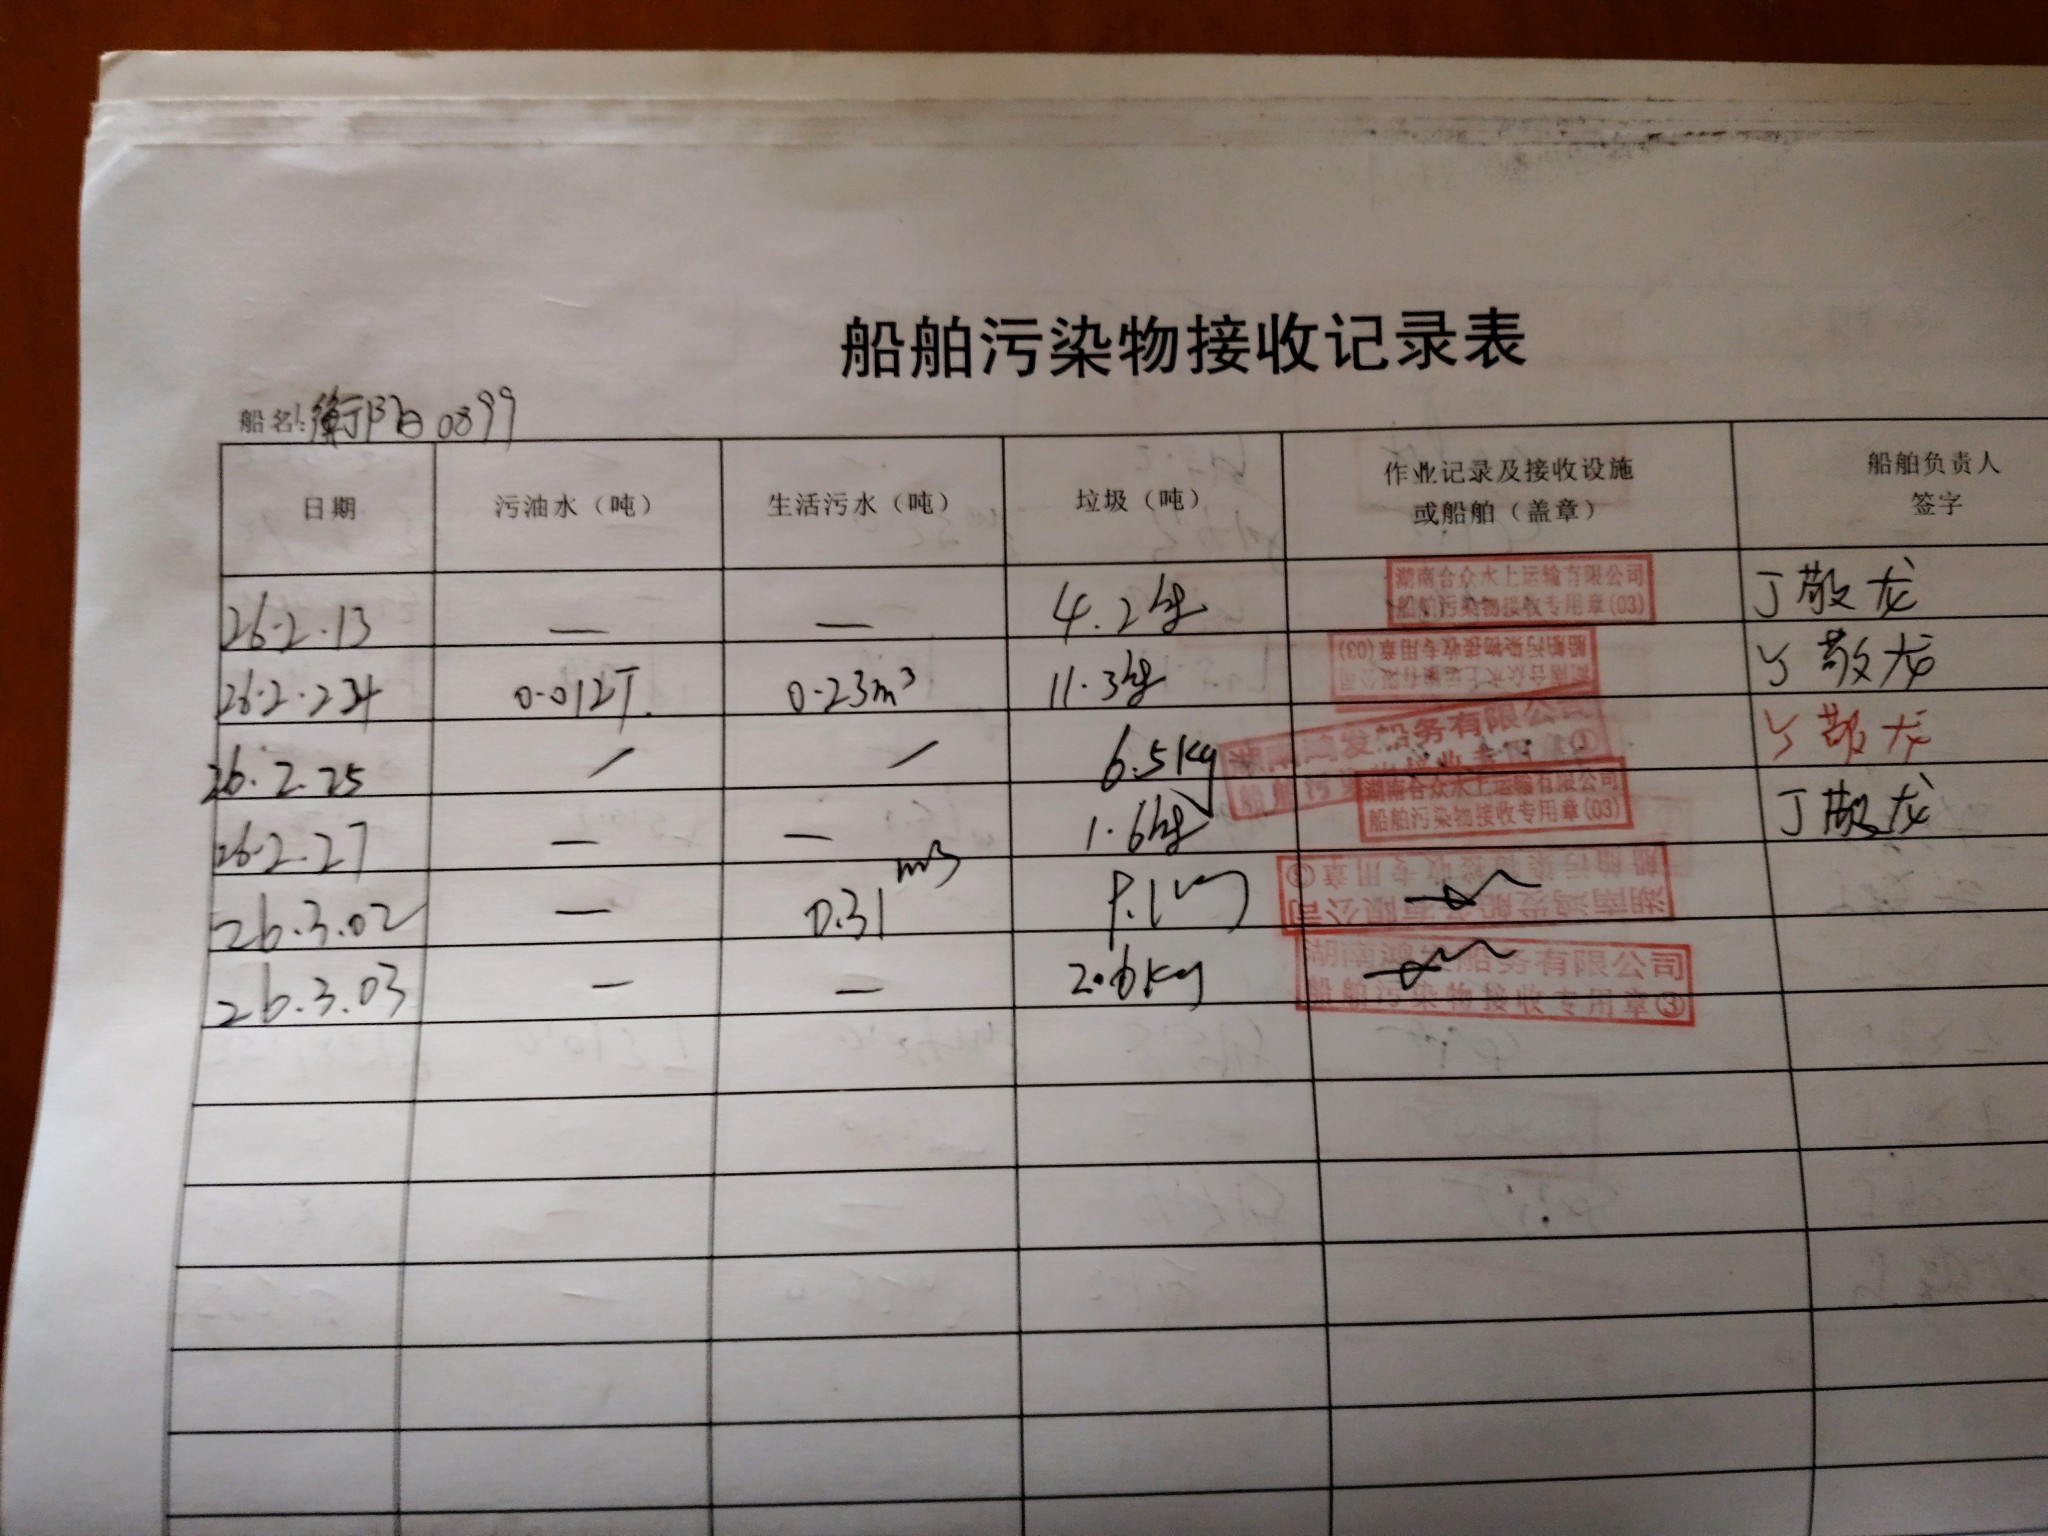 船舶污染物接收记录表
船名:衡阳0899
日期 污油水（吨） 生活污水（吨） 垃圾（吨） 作业记录及接收设施或船舶（盖章） 船舶负责人签字
26.2.13 — — 4.2kg 湖南合众水上运输有限公司 船舶污染物接收专用章(03) 丁敬龙
26.2.24 0.012T 0.23m³ 11.3kg 湖南合众水上运输有限公司 船舶污染物接收专用章(03) 丁敬龙
26.2.25 / / 6.5kg 船务有限公司 ① 丁敬龙
26.2.27 — — 1.6kg 湖南合众水上运输有限公司 船舶污染物接收专用章(03) 丁敬龙
26.3.02 — 0.31 m3 湖南鸿发船务有限公司 船舶污染物接收专用章
26.3.03 — — 2.6kg 湖南鸿发船务有限公司 船舶污染物接收专用章③